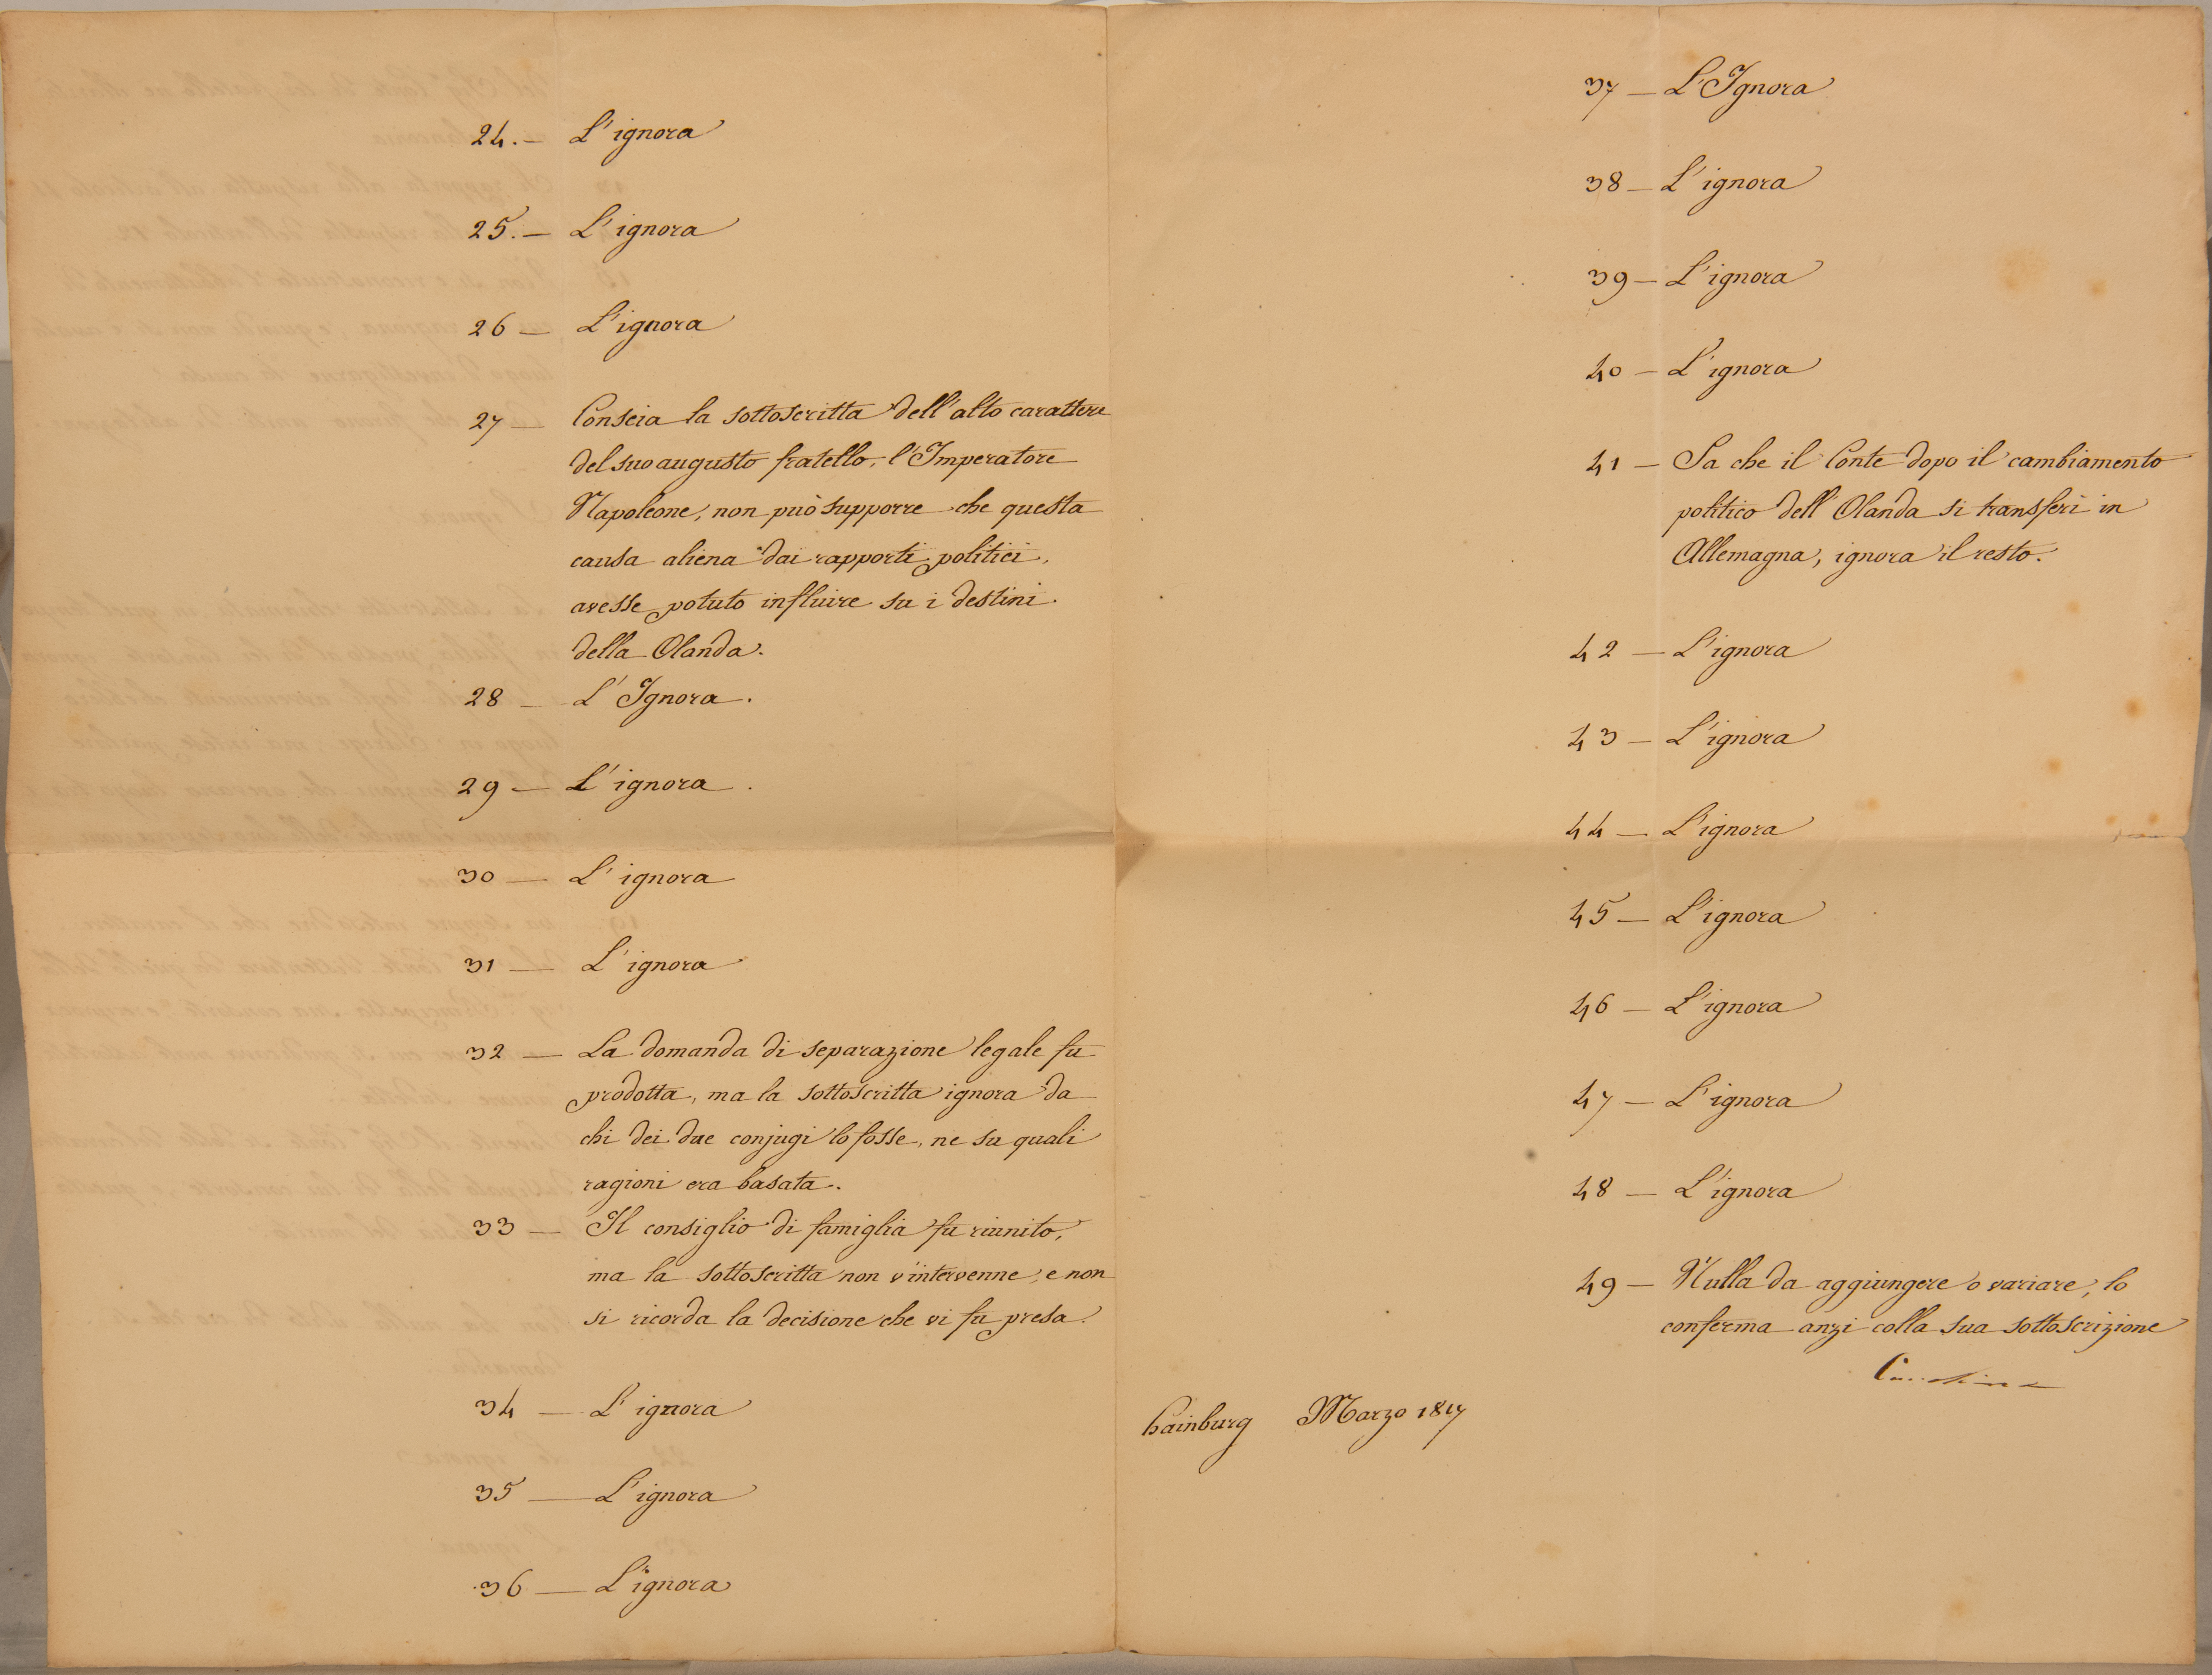 24. — L'ignora
25. — L'ignora
26 — L'ignora
27 — Conscia la sottoscritta dell'alto carattere
del suo augusto fratello, l'Imperatore
Napoleone, non può supporre che questa
causa aliena dai rapporti politici,
avesse potuto influire su i destini
della Olanda.
28 — L'Ignora.
29 — L'ignora.
30 — L'ignora
31 — L'ignora
32 — La domanda di separazione legale fu
prodotta, ma la sottoscritta ignora da
chi dei due conjugi lo fosse, ne su quali
ragioni era basata.
33 — Il consiglio di famiglia fu riunito,
ma la sottoscritta non v'intervenne, e non
si ricorda la decisione che vi fu presa.
34 — L'ignora
35 — L'ignora
36 — L'ignora
37 — L'Ignora
38 — L'ignora
39 — L'ignora
40 — L'ignora
41 — Sa che il Conte dopo il cambiamento
politico dell'Olanda si transferì in
Allemagna, ignora il resto.
42 — L'ignora
43 — L'ignora
44 — L'ignora
45 — L'ignora
46 — L'ignora
47 — L'ignora
48 — L'ignora
49 — Nulla da aggiungere o variare, lo
conferma anzi colla sua sottoscrizione
hainburg Marzo 1817